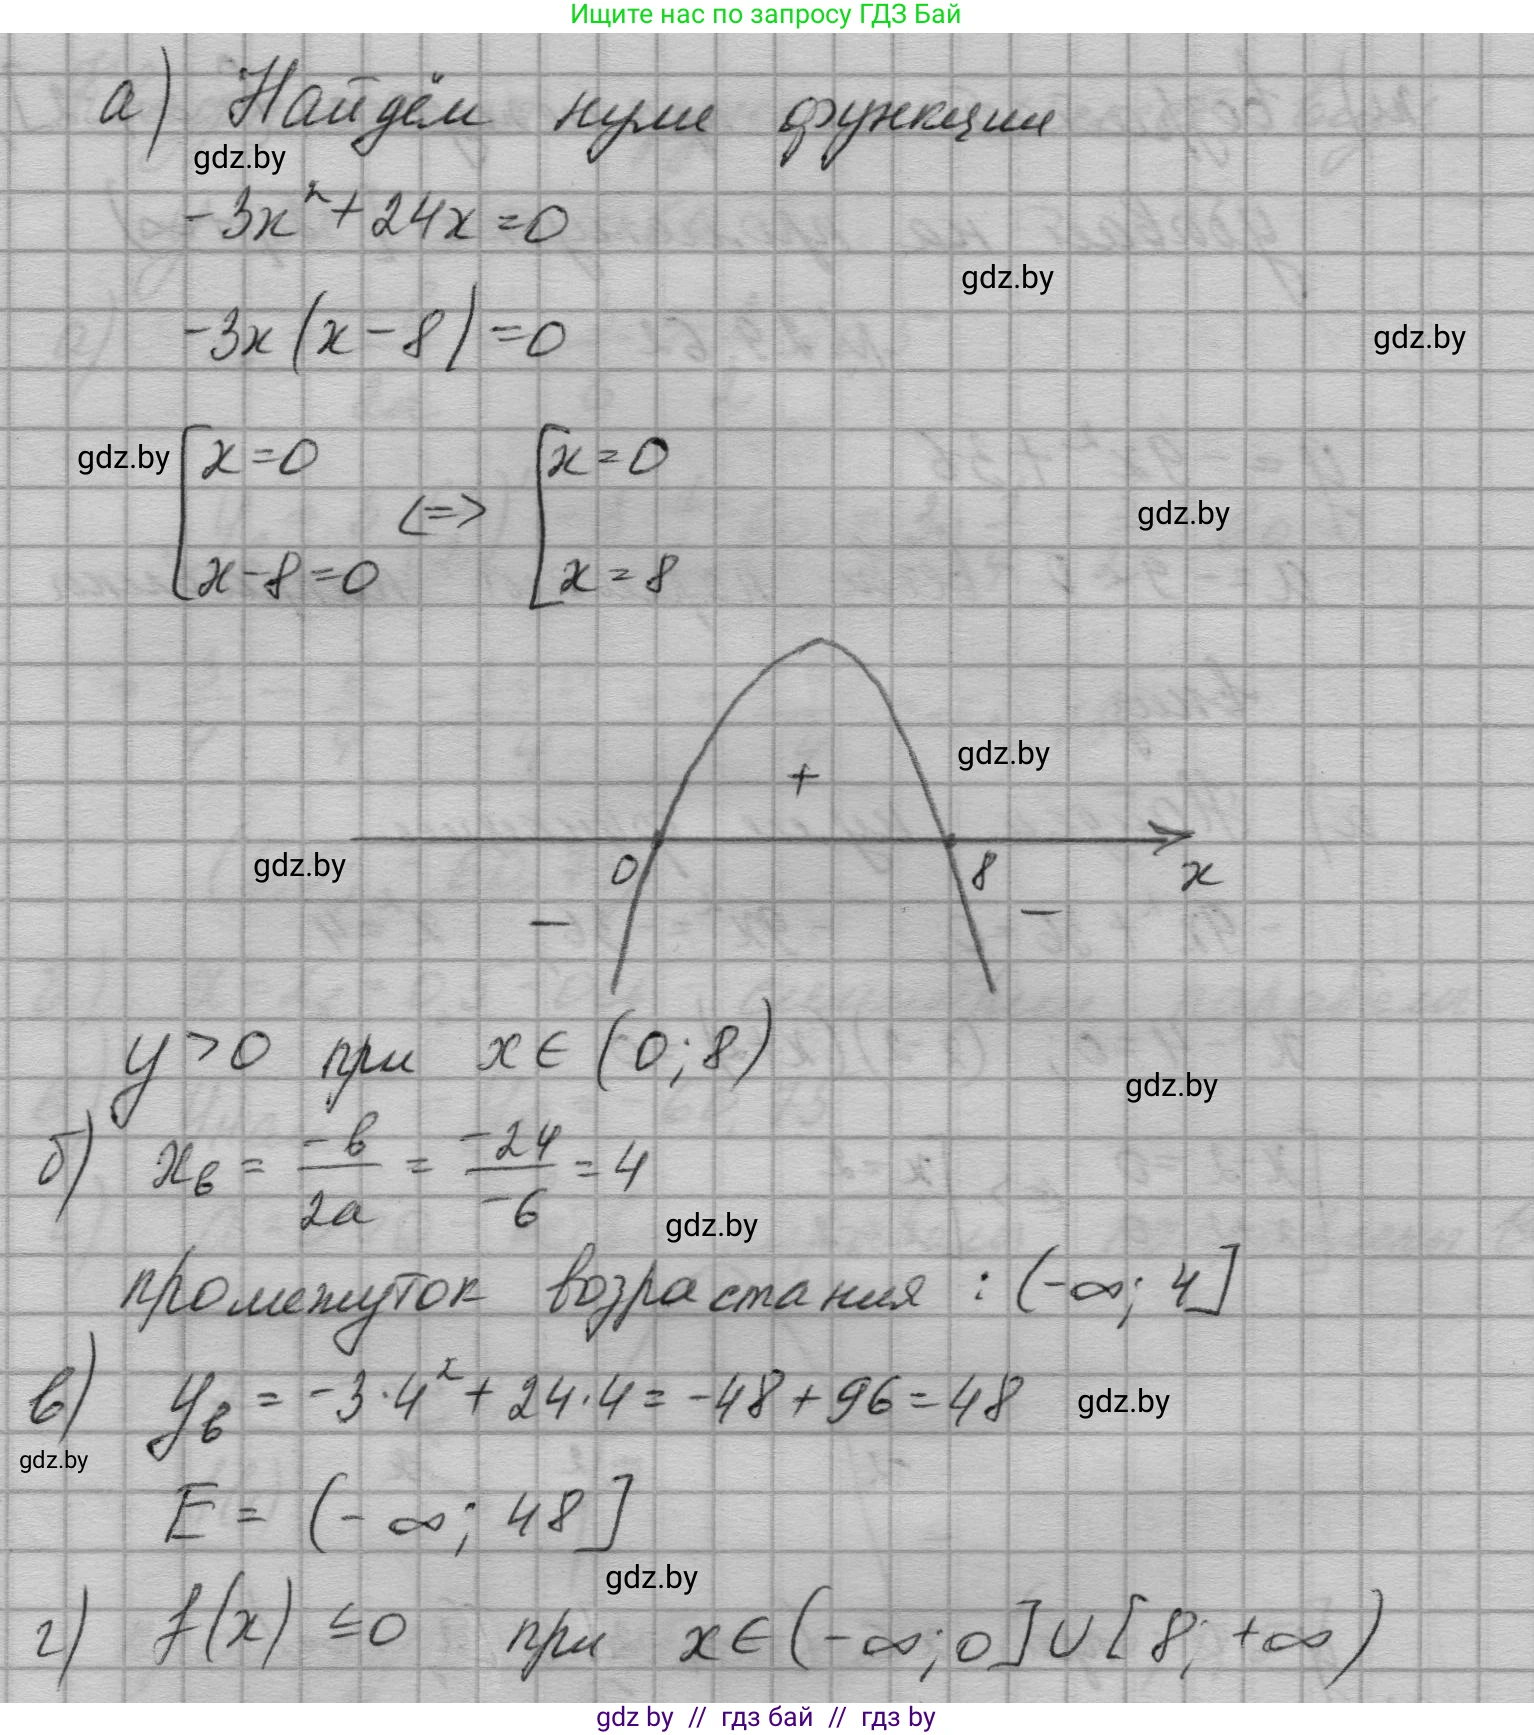 Ищите нас по запросу ГДЗ Бай
а) Найдём нули функции
gdz.by
-3x² + 24x = 0
gdz.by
-3x(x - 8) = 0
gdz.by
gdz.by
[x = 0 <=> [x = 0
gdz.by
x - 8 = 0 x = 8
gdz.by
+
gdz.by
0 8 x
- -
y > 0 при x ∈ (0; 8)
gdz.by
б) xв = -b/2a = -24/-6 = 4
gdz.by
промежуток возрастания : (-∞; 4]
в) yв = -3·4² + 24·4 = -48 + 96 = 48
gdz.by
gdz.by
E = (-∞; 48]
gdz.by
г) f(x) ≤ 0 при x ∈ (-∞; 0] ∪ [8; +∞)
gdz by // гдз бай // гдз by